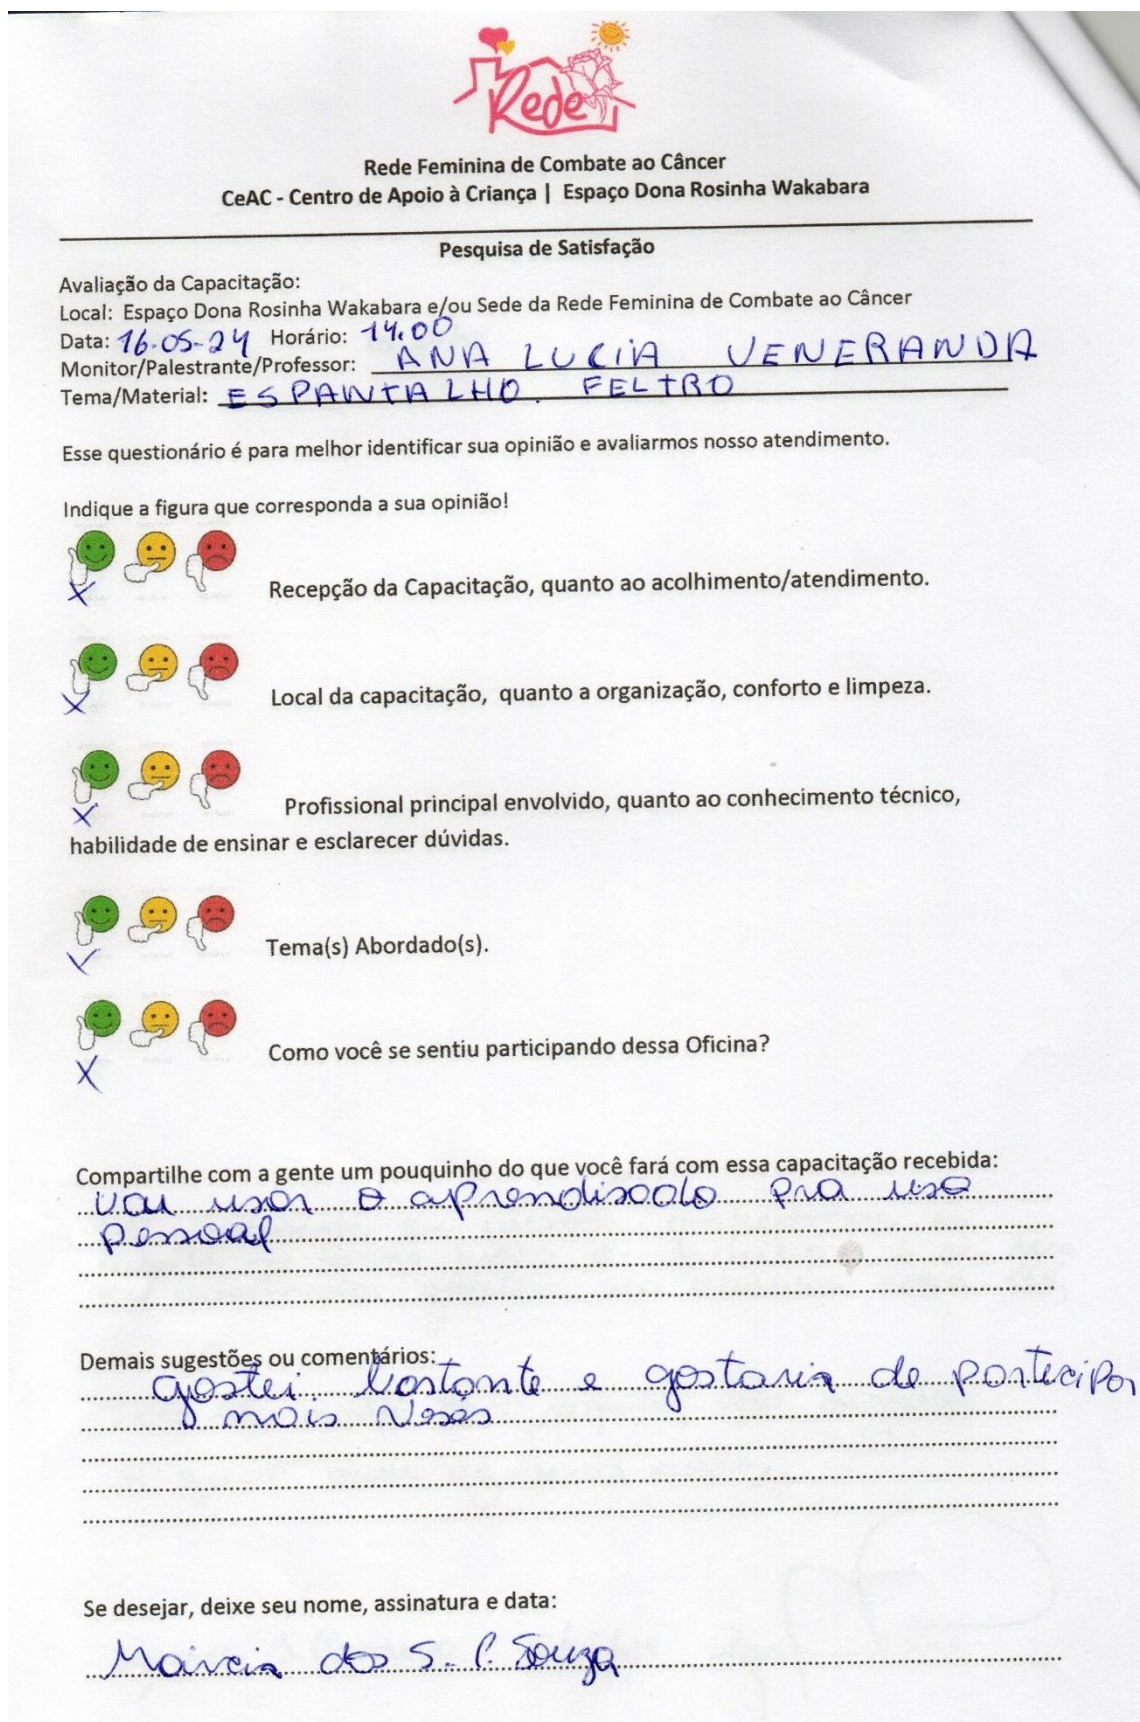 Rede
Rede Feminina de Combate ao Câncer
CeAC - Centro de Apoio à Criança | Espaço Dona Rosinha Wakabara
Pesquisa de Satisfação
Avaliação da Capacitação:
Local: Espaço Dona Rosinha Wakabara e/ou Sede da Rede Feminina de Combate ao Câncer
Data: 16-05-24 Horário: 14.00
Monitor/Palestrante/Professor: ANA LUCIA VENERANDA
Tema/Material: ESPANTALHO. FELTRO
Esse questionário é para melhor identificar sua opinião e avaliarmos nosso atendimento.
Indique a figura que corresponda a sua opinião!
X
Recepção da Capacitação, quanto ao acolhimento/atendimento.
X
Local da capacitação, quanto a organização, conforto e limpeza.
X
Profissional principal envolvido, quanto ao conhecimento técnico,
habilidade de ensinar e esclarecer dúvidas.
Tema(s) Abordado(s).
X
Como você se sentiu participando dessa Oficina?
Compartilhe com a gente um pouquinho do que você fará com essa capacitação recebida:
vou usar o aprendisado pra uso
pessoal
Demais sugestões ou comentários:
gostei bastante e gostaria de participar
mais veses
Se desejar, deixe seu nome, assinatura e data:
Marcia dos S. P. Souza